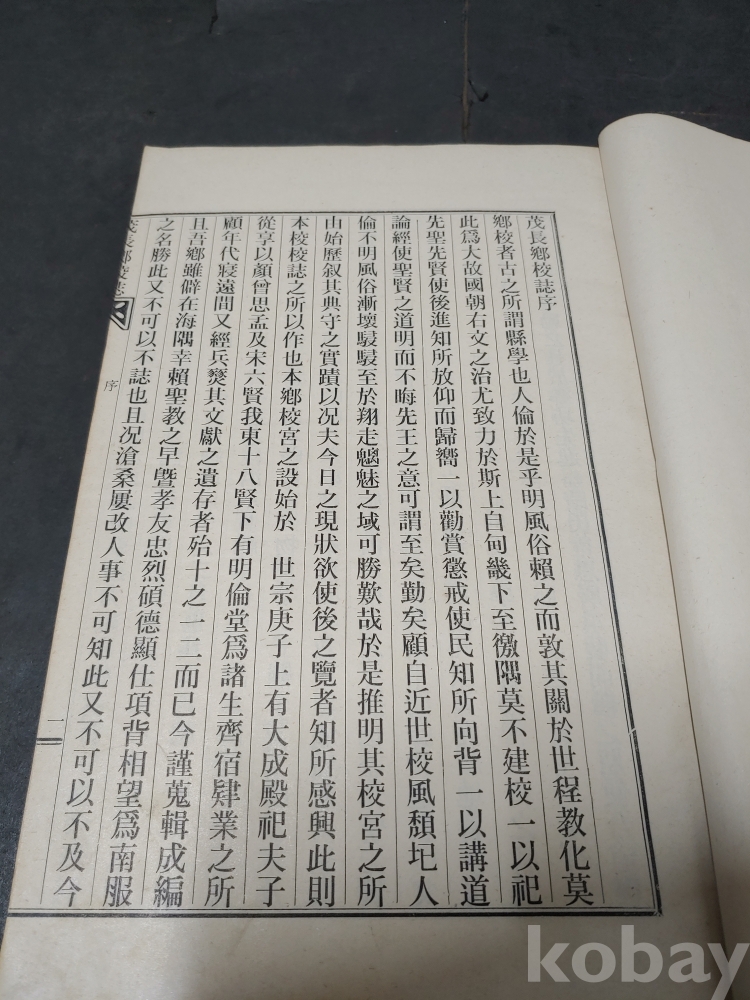 茂長鄕校誌序
鄕校者古之所謂縣學也人倫於是乎明風俗賴之而敦其關於世程敎化莫
此爲大故國朝右文之治尤致力於斯上自甸畿下至徼隅莫不建校一以祀
先聖先賢使後進知所放仰而歸嚮一以勸賞懲戒使民知所向背一以講道
論經使聖賢之道明而不晦先王之意可謂至矣勤矣顧自近世校風頹圮人
倫不明風俗漸壞駸駸至於翔走魑魅之域可勝歎哉於是推明其校宮之所
由始歷叙其典守之實蹟以况夫今日之現狀欲使後之覽者知所感興此則
本校校誌之所以作也本鄕校宮之設始於 世宗庚子上有大成殿祀夫子
從享以顔曾思孟及宋六賢我東十八賢下有明倫堂爲諸生齊宿肄業之所
顧年代寢遠間又經兵燹其文獻之遺存者殆十之一二而已今謹蒐輯成編
且吾鄕雖僻在海隅幸賴聖敎之早曁孝友忠烈碩德顯仕項背相望爲南服
之名勝此又不可以不誌也且况滄桑屢改人事不可知此又不可以不及今
茂長鄕校誌
序
二
kobay